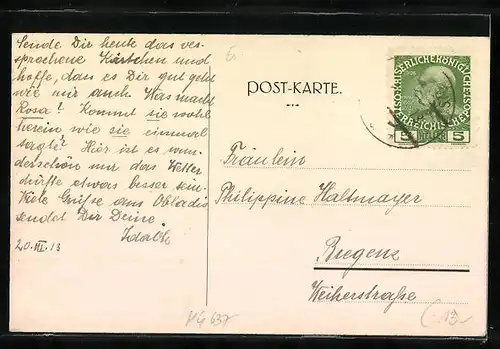 Sende Dir heute das ver-
sprochene Kärtchen und
hoffe, dass es Dir gut geht
wie mir auch. Was macht
Rosa? Kommt sie wohl
herein wie sie einmal
sagte? Hier ist es wun-
derschön nur das Wetter
dürfte etwas besser sein.
Viele Grüsse aus Obladis
sendet Dir Deine
20. III. 13
POST-KARTE.
Fräulein
Philippine Haltmayer
Bregenz
Weiherstraße
KAISERLICHE KÖNIGLICHE
ÖSTERREICHISCHE POST
5 5
13